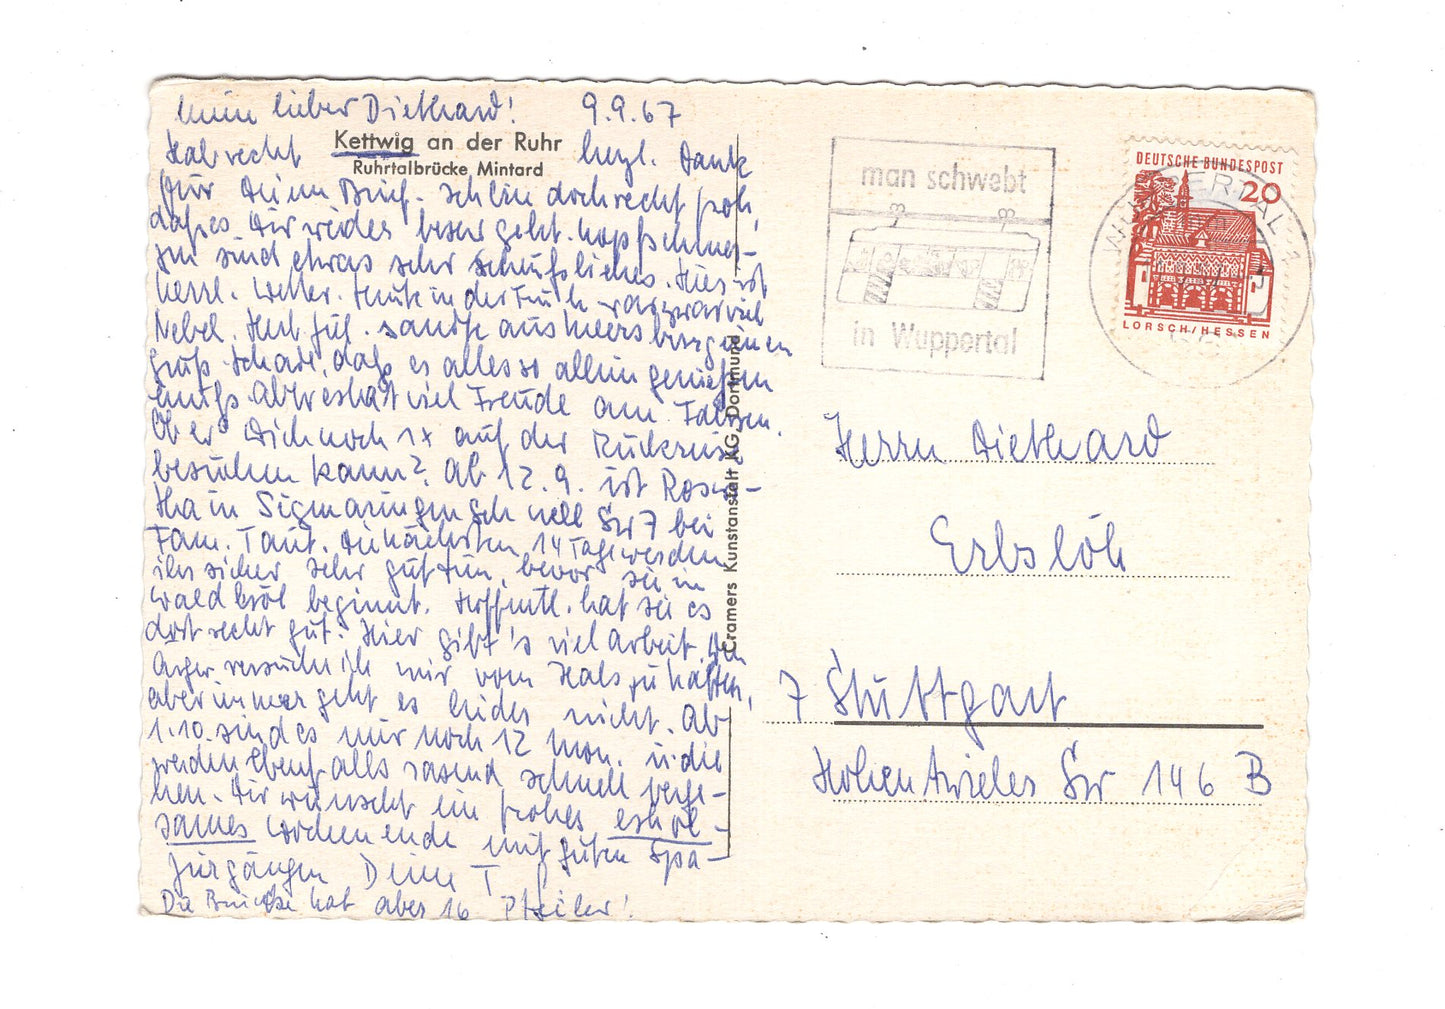 Mein lieber Diethard! 9.9.67
Kettwig an der Ruhr
Ruhrtalbrücke Mintard
Hab recht herzl. Dank
für Deinen Brief. Ich bin doch recht froh,
daß es Dir wieder besser geht. Kopfschmer-
zen sind etwas sehr Scheußliches. Hier ist
herrl. Wetter. Heute in der Früh war zwar viel
Nebel. Herb. sandte aus Meersburg einen
Gruß. Schade, daß er alles so allein genießen
muß. Aber er hat viel Freude am Fahren.
Ob er Dich noch 1x auf der Rückreise
besuchen kann? Ab 12.9. ist Roswi-
tha in Sigmaringen bei
Fam. Taut. Die nächsten 14 Tage werden
ihr sicher sehr gut tun, bevor sie in
Waldbröl beginnt. Hoffentl. hat sie es
dort recht gut. Hier gibt's viel Arbeit. Den
Ärger versuche ich mir vom Hals zu halten,
aber immer geht es leider nicht. Ab
1.10. sind es mir noch 12 Mon. u. die
werden ebenfalls rasend schnell verge-
hen. Dir wünscht ein frohes erhol-
sames Wochenende mit guten Spa-
ziergängen Deine T
Die Brücke hat aber 16 Pfeiler!
Cramers Kunstanstalt KG, Dortmund
man schwebt
in Wuppertal
WUPPERTAL
DEUTSCHE BUNDESPOST
20
LORSCH/HESSEN
Herrn Diethard
Erbslöh
7 Stuttgart
Hohentwieler Str 146 B